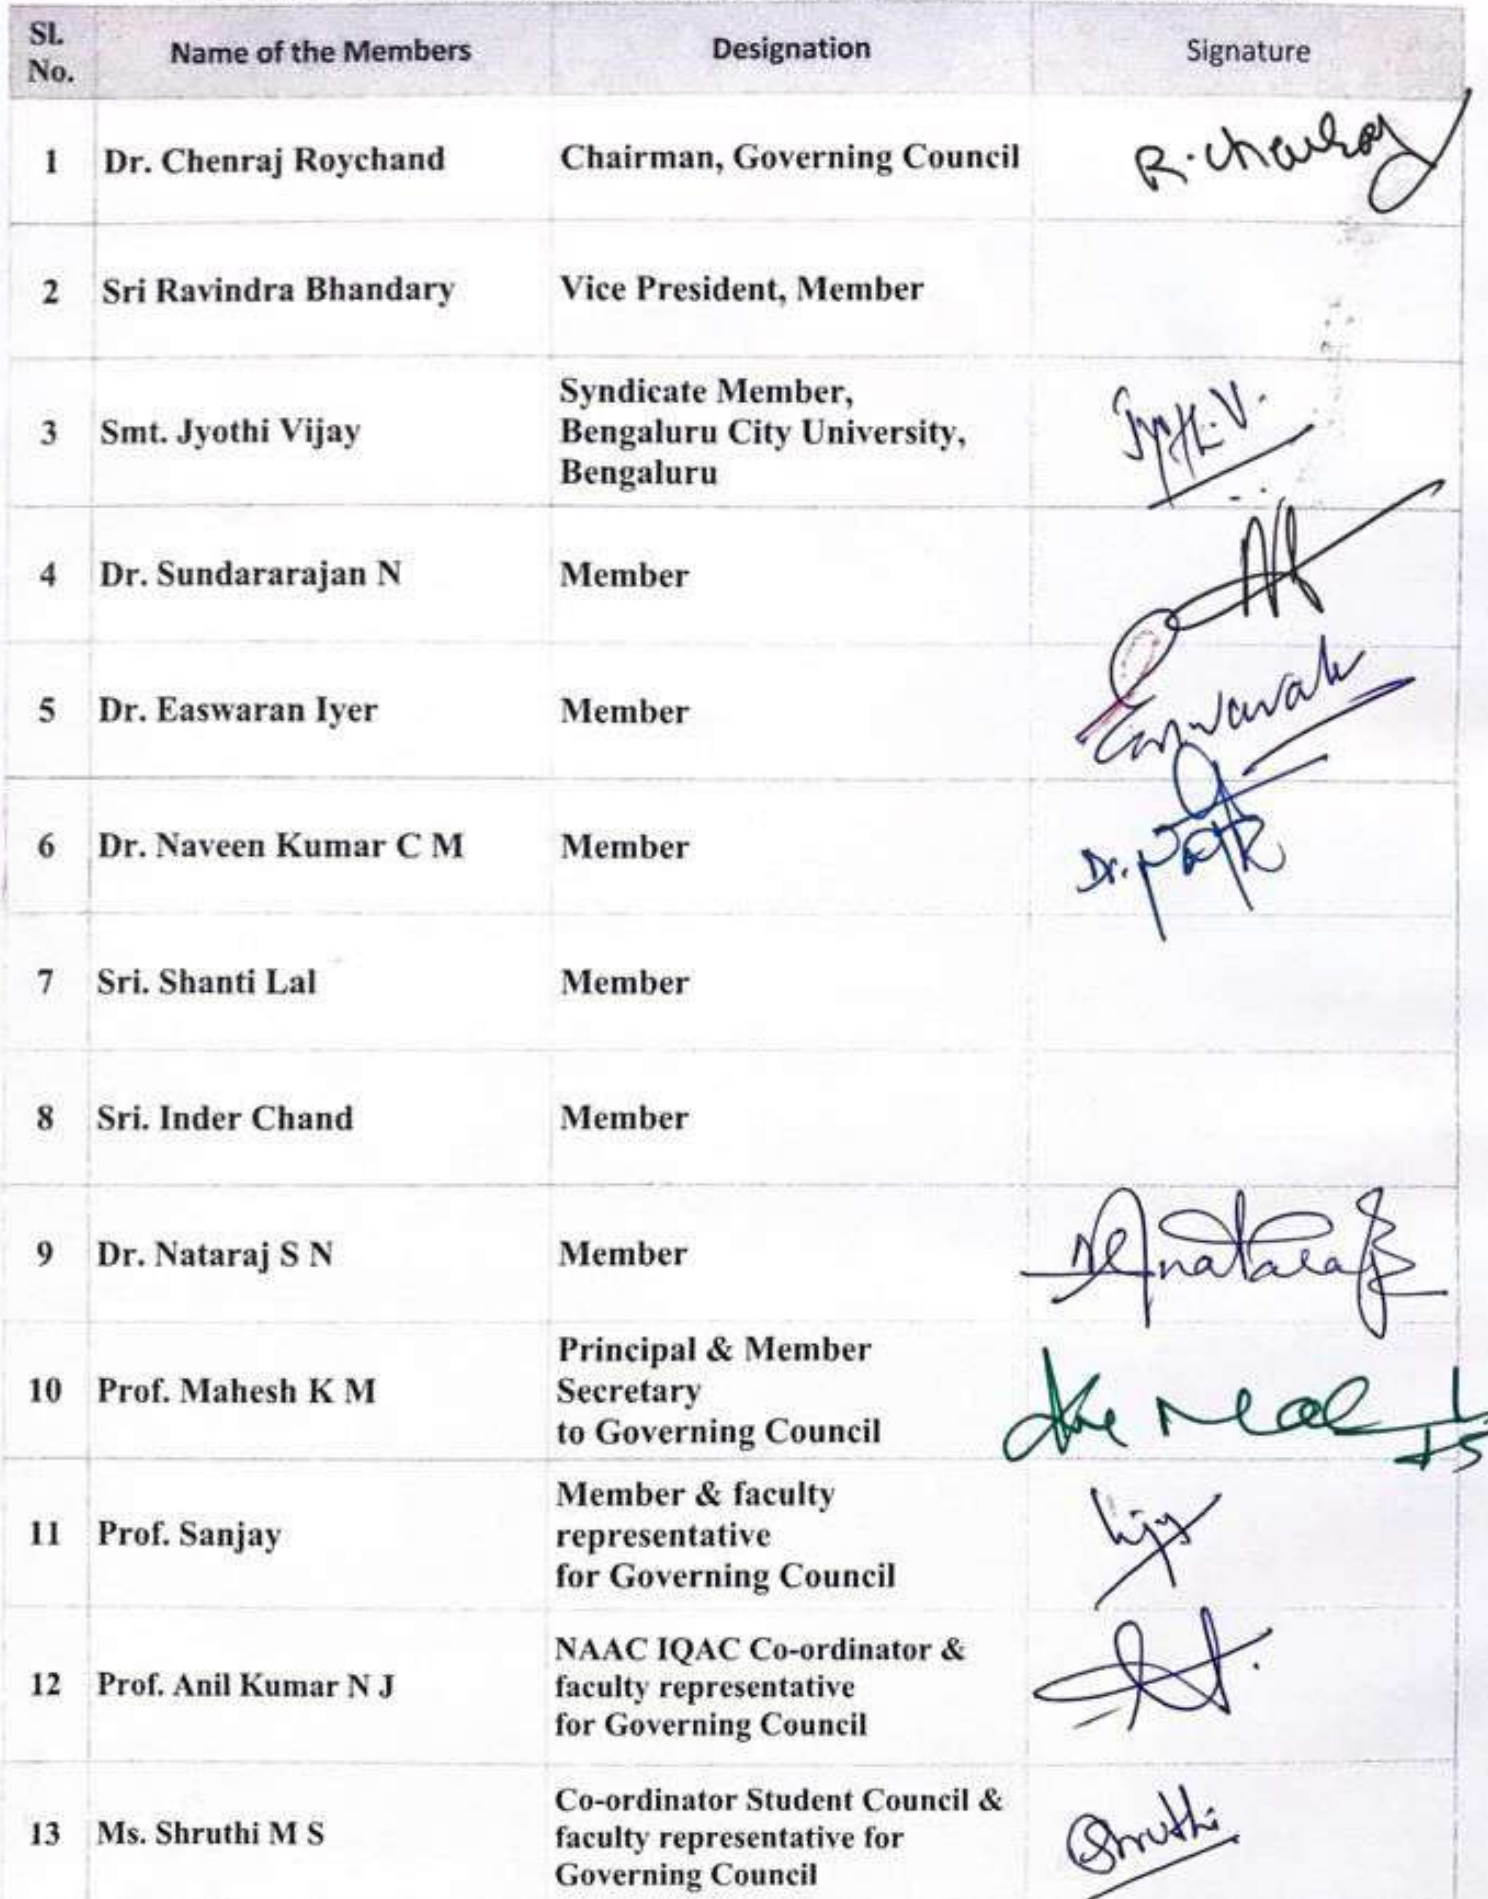 Sl. No. Name of the Members Designation Signature
1 Dr. Chenraj Roychand Chairman, Governing Council
2 Sri Ravindra Bhandary Vice President, Member
3 Smt. Jyothi Vijay Syndicate Member,
Bengaluru City University,
Bengaluru
Jyothi.V.
4 Dr. Sundararajan N Member
5 Dr. Easwaran Iyer Member
6 Dr. Naveen Kumar C M Member
Dr.
7 Sri. Shanti Lal Member
8 Sri. Inder Chand Member
9 Dr. Nataraj S N Member
10 Prof. Mahesh K M Principal & Member
Secretary
to Governing Council
11 Prof. Sanjay Member & faculty
representative
for Governing Council
12 Prof. Anil Kumar N J NAAC IQAC Co-ordinator &
faculty representative
for Governing Council
13 Ms. Shruthi M S Co-ordinator Student Council &
faculty representative for
Governing Council
Shruthi